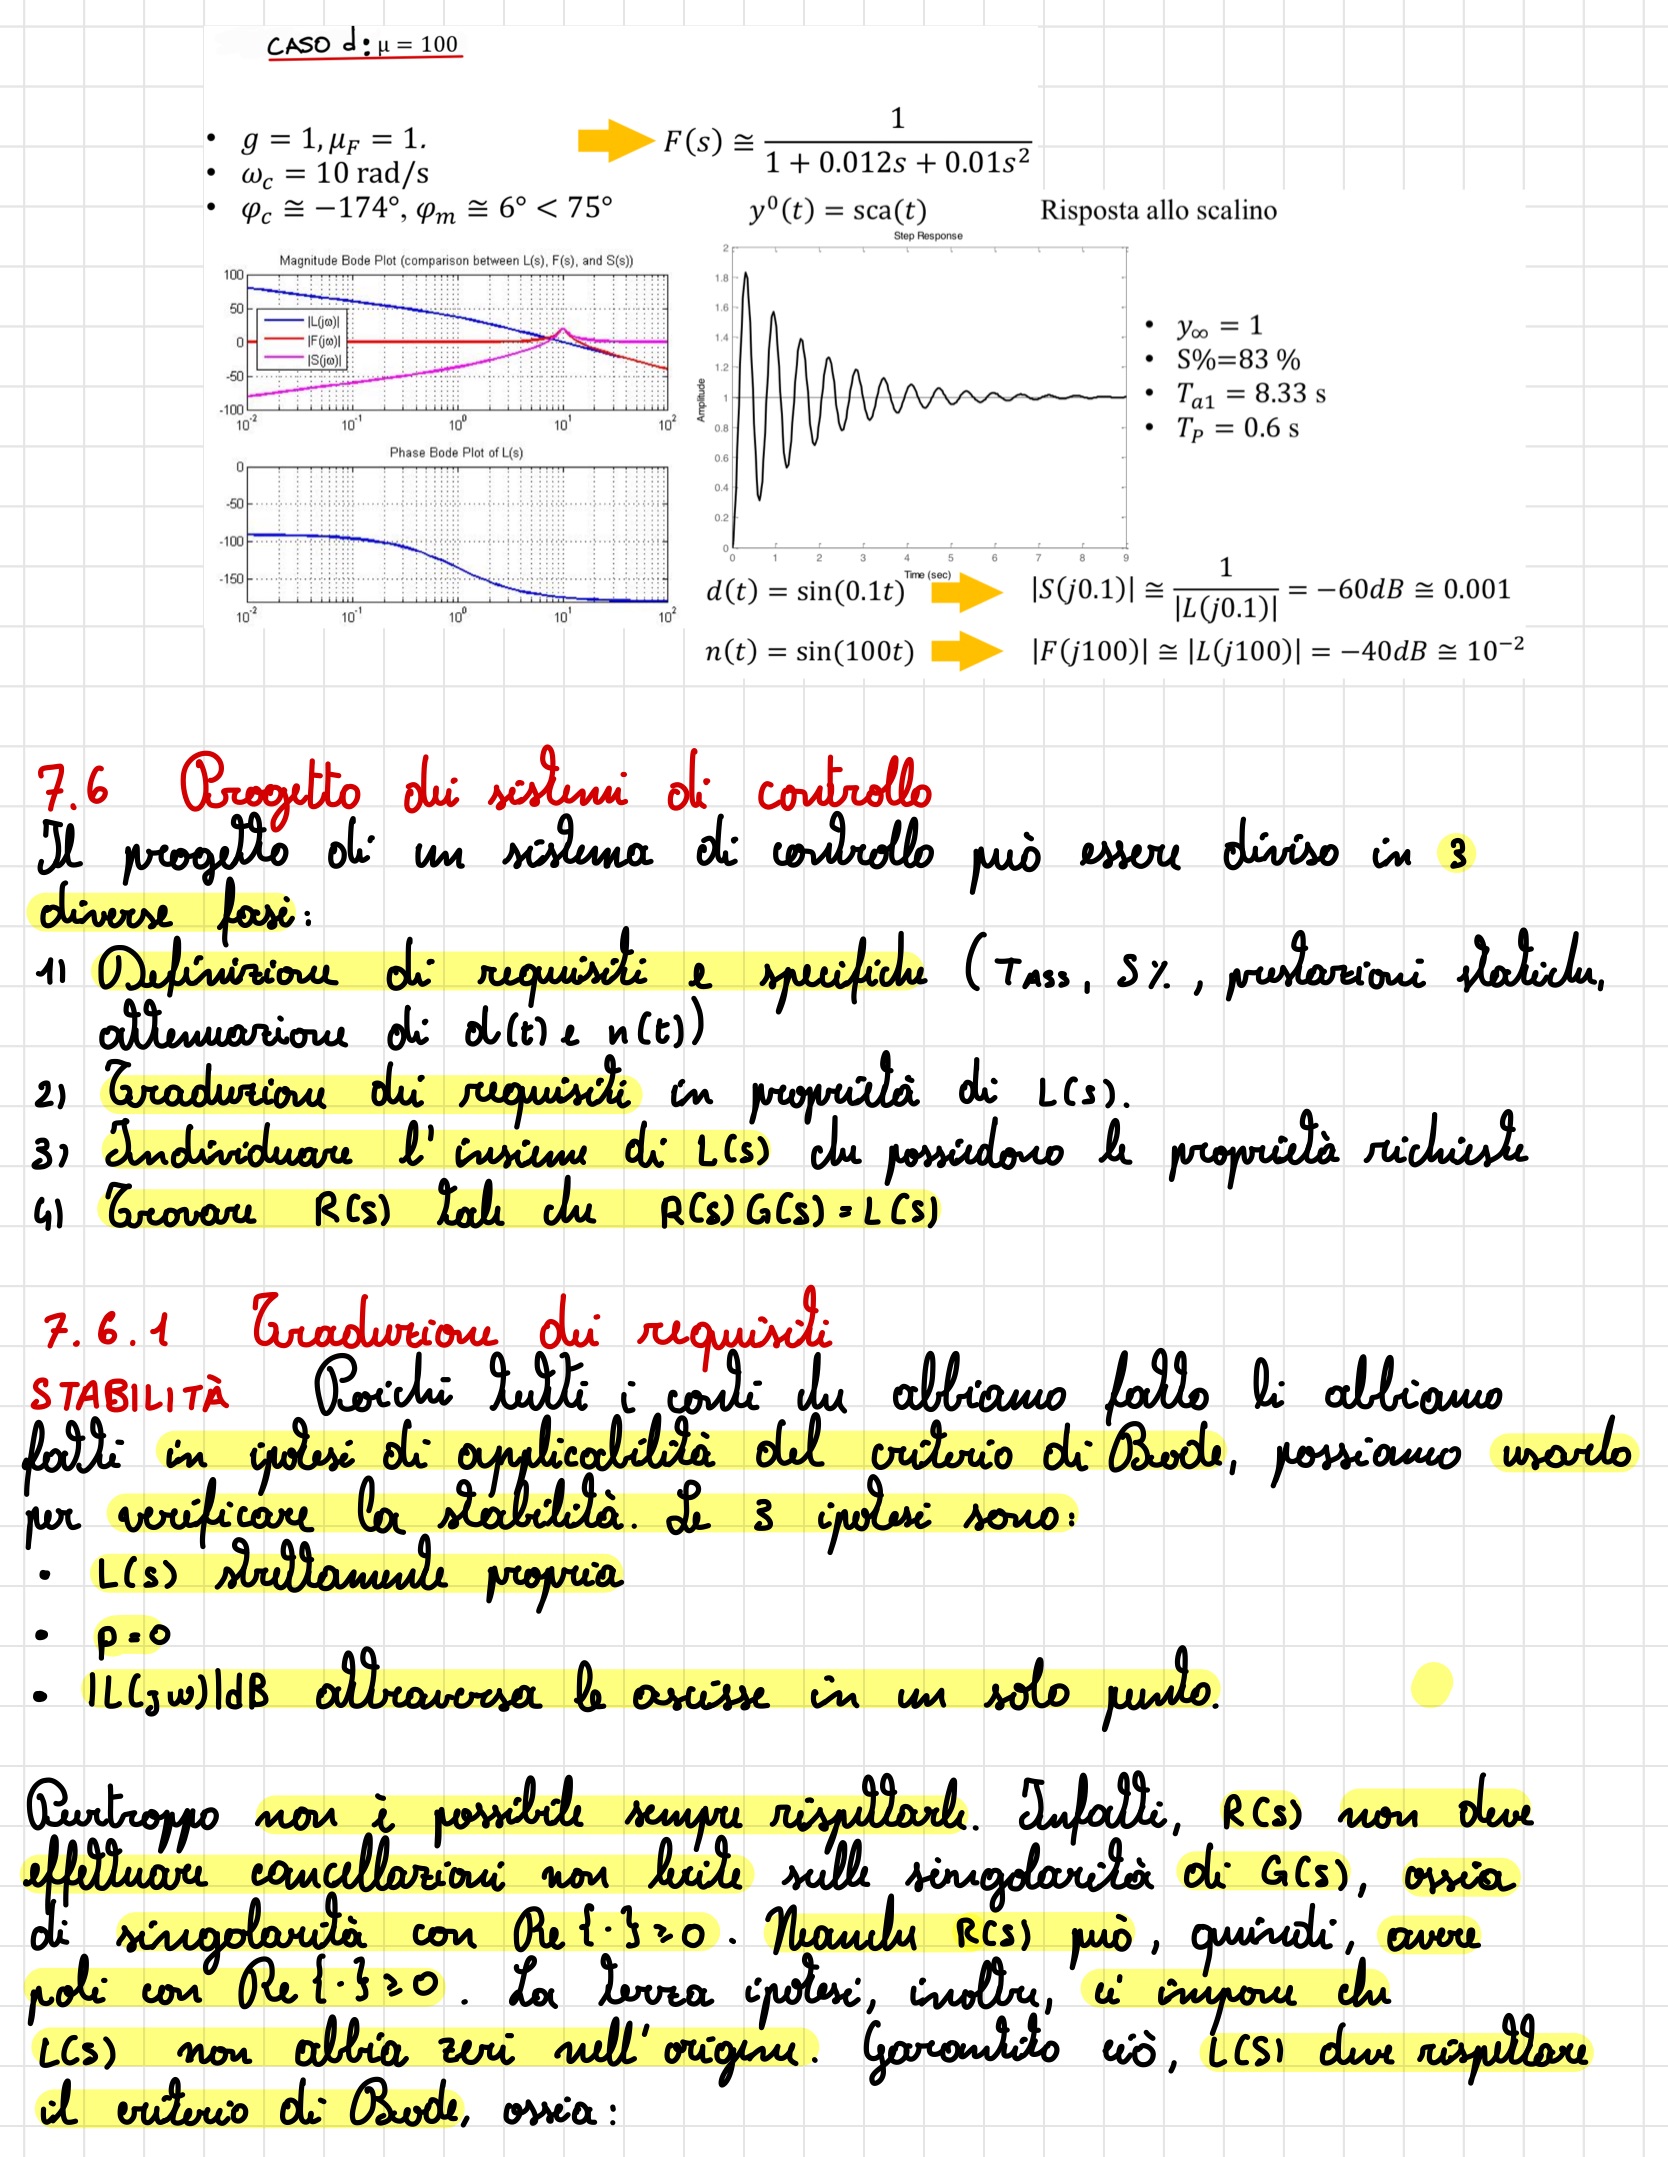 CASO d: μ = 100
• g = 1, μ_F = 1.
F(s) ≅ 1 / (1 + 0.012s + 0.01s²)
• ω_c = 10 rad/s
• φ_c ≅ −174°, φ_m ≅ 6° < 75°
y⁰(t) = sca(t)
Risposta allo scalino
Magnitude Bode Plot (comparison between L(s), F(s), and S(s))
100
50
0
-50
-100
|L(jω)|
|F(jω)|
|S(jω)|
10⁻² 10⁻¹ 10⁰ 10¹ 10²
Phase Bode Plot of L(s)
0
-50
-100
-150
10⁻² 10⁻¹ 10⁰ 10¹ 10²
Step Response
2
1.8
1.6
1.4
1.2
1
0.8
0.6
0.4
0.2
0
Amplitude
0 1 2 3 4 5 6 7 8 9
Time (sec)
• y_∞ = 1
• S%=83 %
• T_a1 = 8.33 s
• T_P = 0.6 s
d(t) = sin(0.1t)
|S(j0.1)| ≅ 1 / |L(j0.1)| = −60dB ≅ 0.001
n(t) = sin(100t)
|F(j100)| ≅ |L(j100)| = −40dB ≅ 10⁻²
7.6 Progetto dei sistemi di controllo
Il progetto di un sistema di controllo può essere diviso in 3
diverse fasi:
1) Definizione di requisiti e specifiche (TASS, S%, prestazioni statiche,
attenuazione di d(t) e n(t))
2) Traduzione dei requisiti in proprietà di L(s).
3) Individuare l'insieme di L(s) che possiedono le proprietà richieste
4) Trovare R(s) tale che R(s)G(s)=L(s)
7.6.1 Traduzione dei requisiti
STABILITÀ Poichè tutti i conti che abbiamo fatto li abbiamo
fatti in ipotesi di applicabilità del criterio di Bode, possiamo usarlo
per verificare la stabilità. Le 3 ipotesi sono:
• L(s) strettamente propria
• p=0
• |L(jω)|dB attraversa le ascisse in un solo punto.
Purtroppo non è possibile sempre rispettarle. Infatti, R(s) non deve
effettuare cancellazioni non lecite sulle singolarità di G(s), ossia
di singolarità con Re{·}≥0. Neanche R(s) può, quindi, avere
poli con Re{·}≥0. La terza ipotesi, inoltre, ci impone che
L(s) non abbia zeri nell'origine. Garantito ciò, L(s) deve rispettare
il criterio di Bode, ossia: